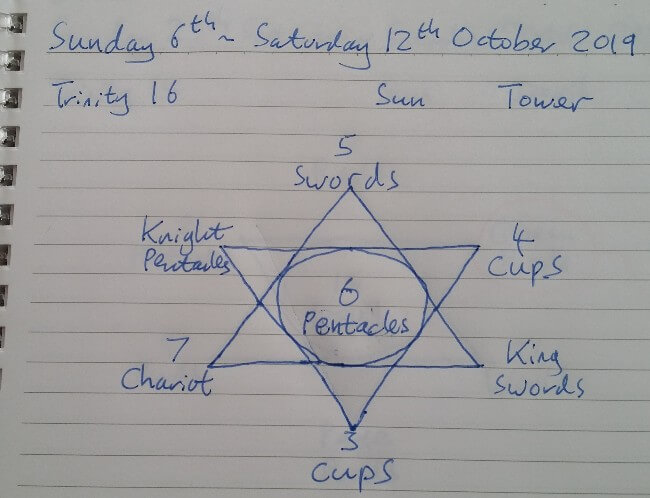 Sunday 6th ~ Saturday 12th October 2019
Trinity 16 Sun Tower
5
Swords
Knight
Pentacles
4
Cups
6
Pentacles
7
Chariot
King
Swords
3
Cups